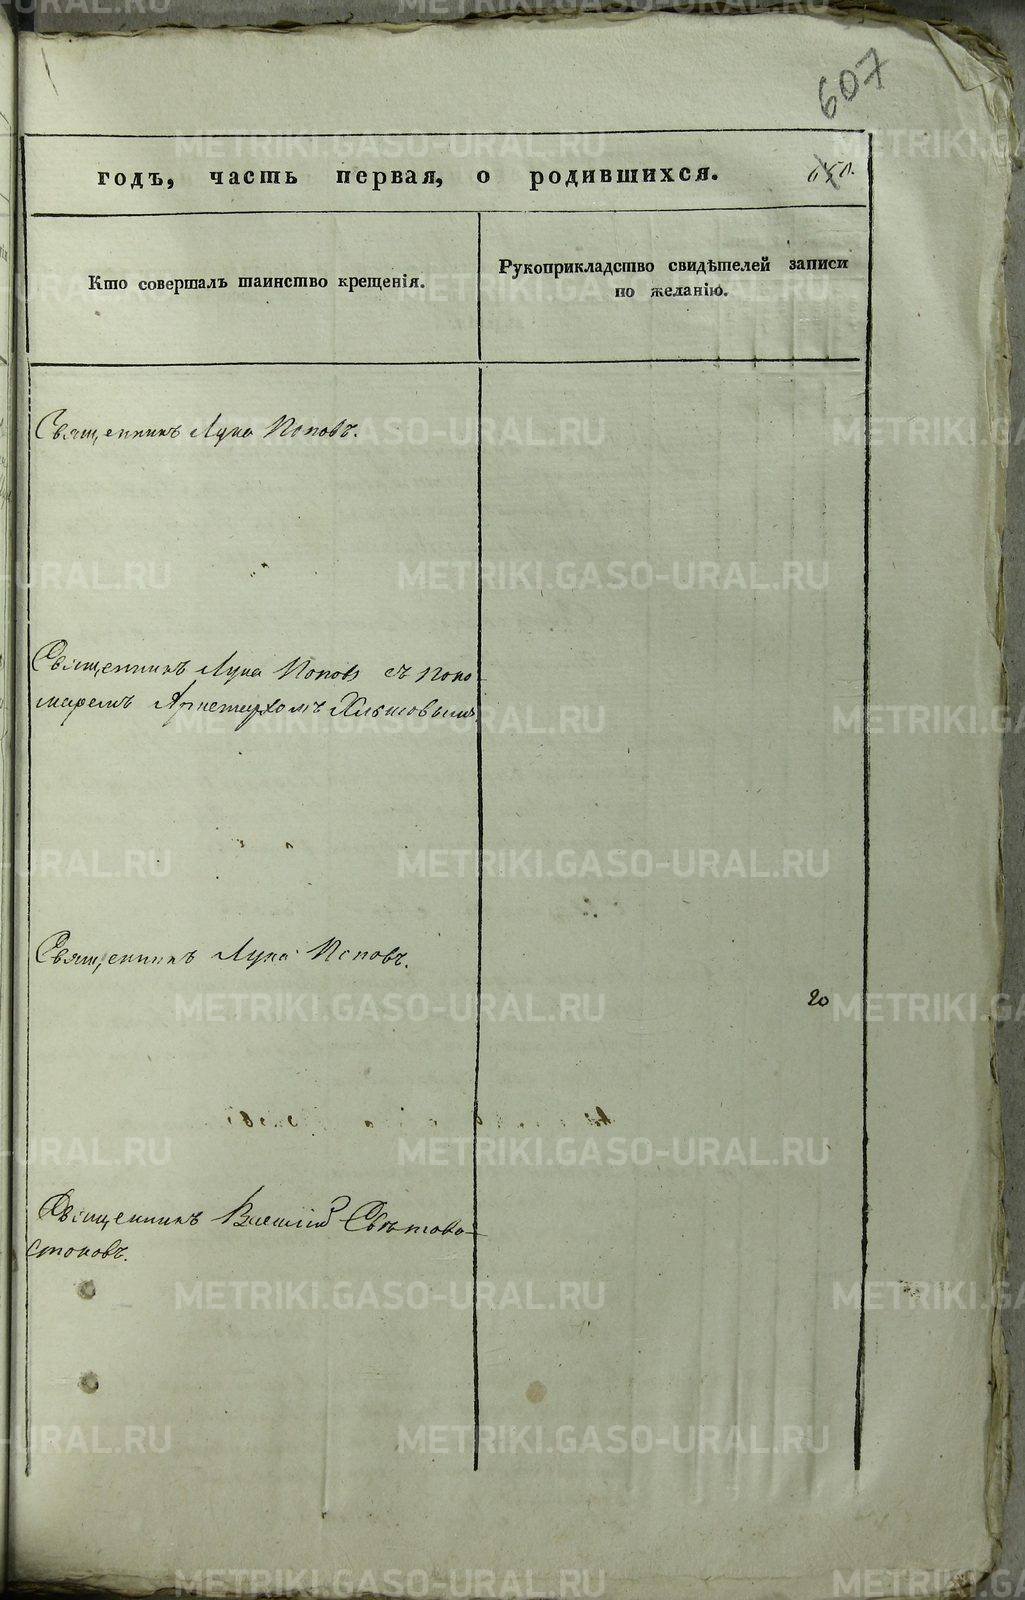 607
годъ, часть первая, о родившихся.
Кто совершалъ таинство крещенія.
Рукоприкладство свидѣтелей записи
по желанію.
Священникъ Лука Поповъ.
Священникъ Лука Поповъ съ поно-
маремъ
Священникъ Лука Поповъ.
20
Священникъ Василій Свѣтово-
стоковъ.
METRIKI.GASO-URAL.RU